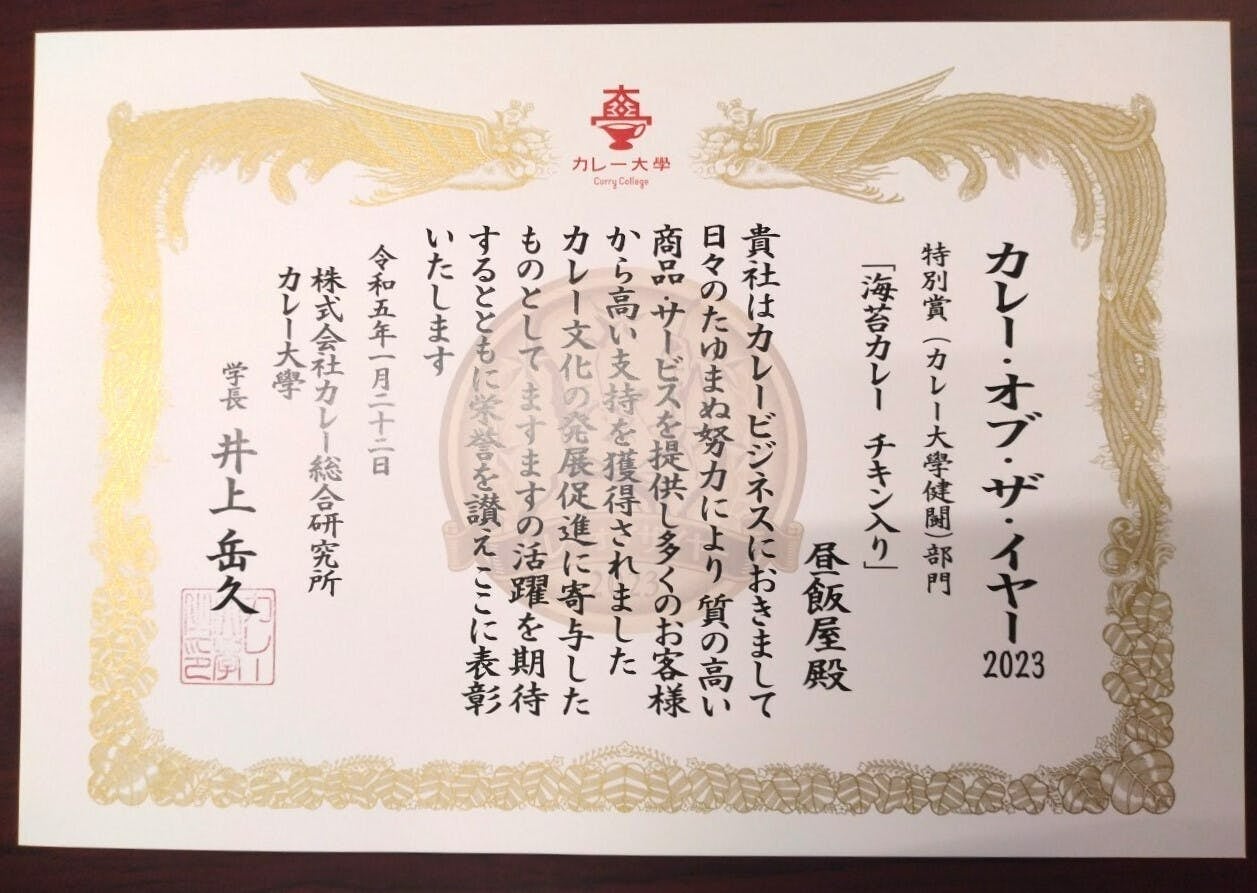 カレー大學
Curry College
カレー・オブ・ザ・イヤー2023
特別賞（カレー大學健闘）部門
「海苔カレー チキン入り」
昼飯屋殿
貴社はカレービジネスにおきまして
日々のたゆまぬ努力により質の高い
商品・サービスを提供し多くのお客様
から高い支持を獲得されました
カレー文化の発展促進に寄与した
ものとしてますますの活躍を期待
するとともに栄誉を讃えここに表彰
いたします
令和五年一月二十二日
株式会社カレー総合研究所
カレー大學
学長 井上岳久
2023